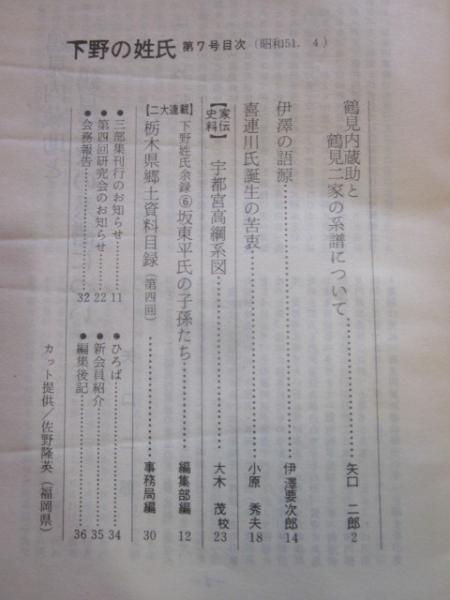 下野の姓氏 第7号目次(昭和51. 4)
鶴見内蔵助と
鶴見二家の系譜について…………矢口 二郎 2
伊澤の語源…………伊澤要次郎 14
喜連川氏誕生の苦衷…………小原 秀夫 18
【家伝史料】 宇都宮高綱系図…………大木 茂校 23
【二大連載】
下野姓氏余録⑥坂東平氏の子孫たち…………編集部編 12
栃木県郷土資料目録(第四回)…………事務局編 30
●三部集刊行のお知らせ…………11
●第四回研究会のお知らせ…………22
●会務報告…………32
●ひろば…………34
●新会員紹介…………35
●編集後記…………36
カット提供/佐野隆英(福岡県)